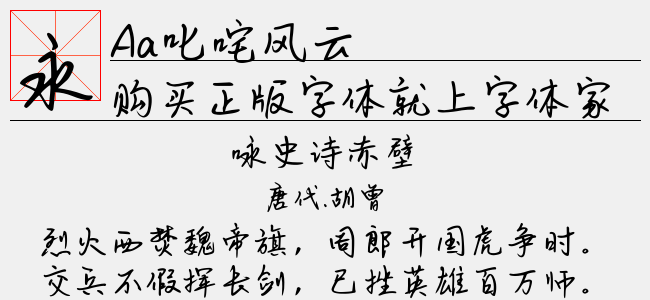 永
Aa叱咤风云
购买正版字体就上字体家
咏史诗赤壁
唐代.胡曾
烈火西焚魏帝旗，周郎开国虎争时。
交兵不假挥长剑，已挫英雄百万师。